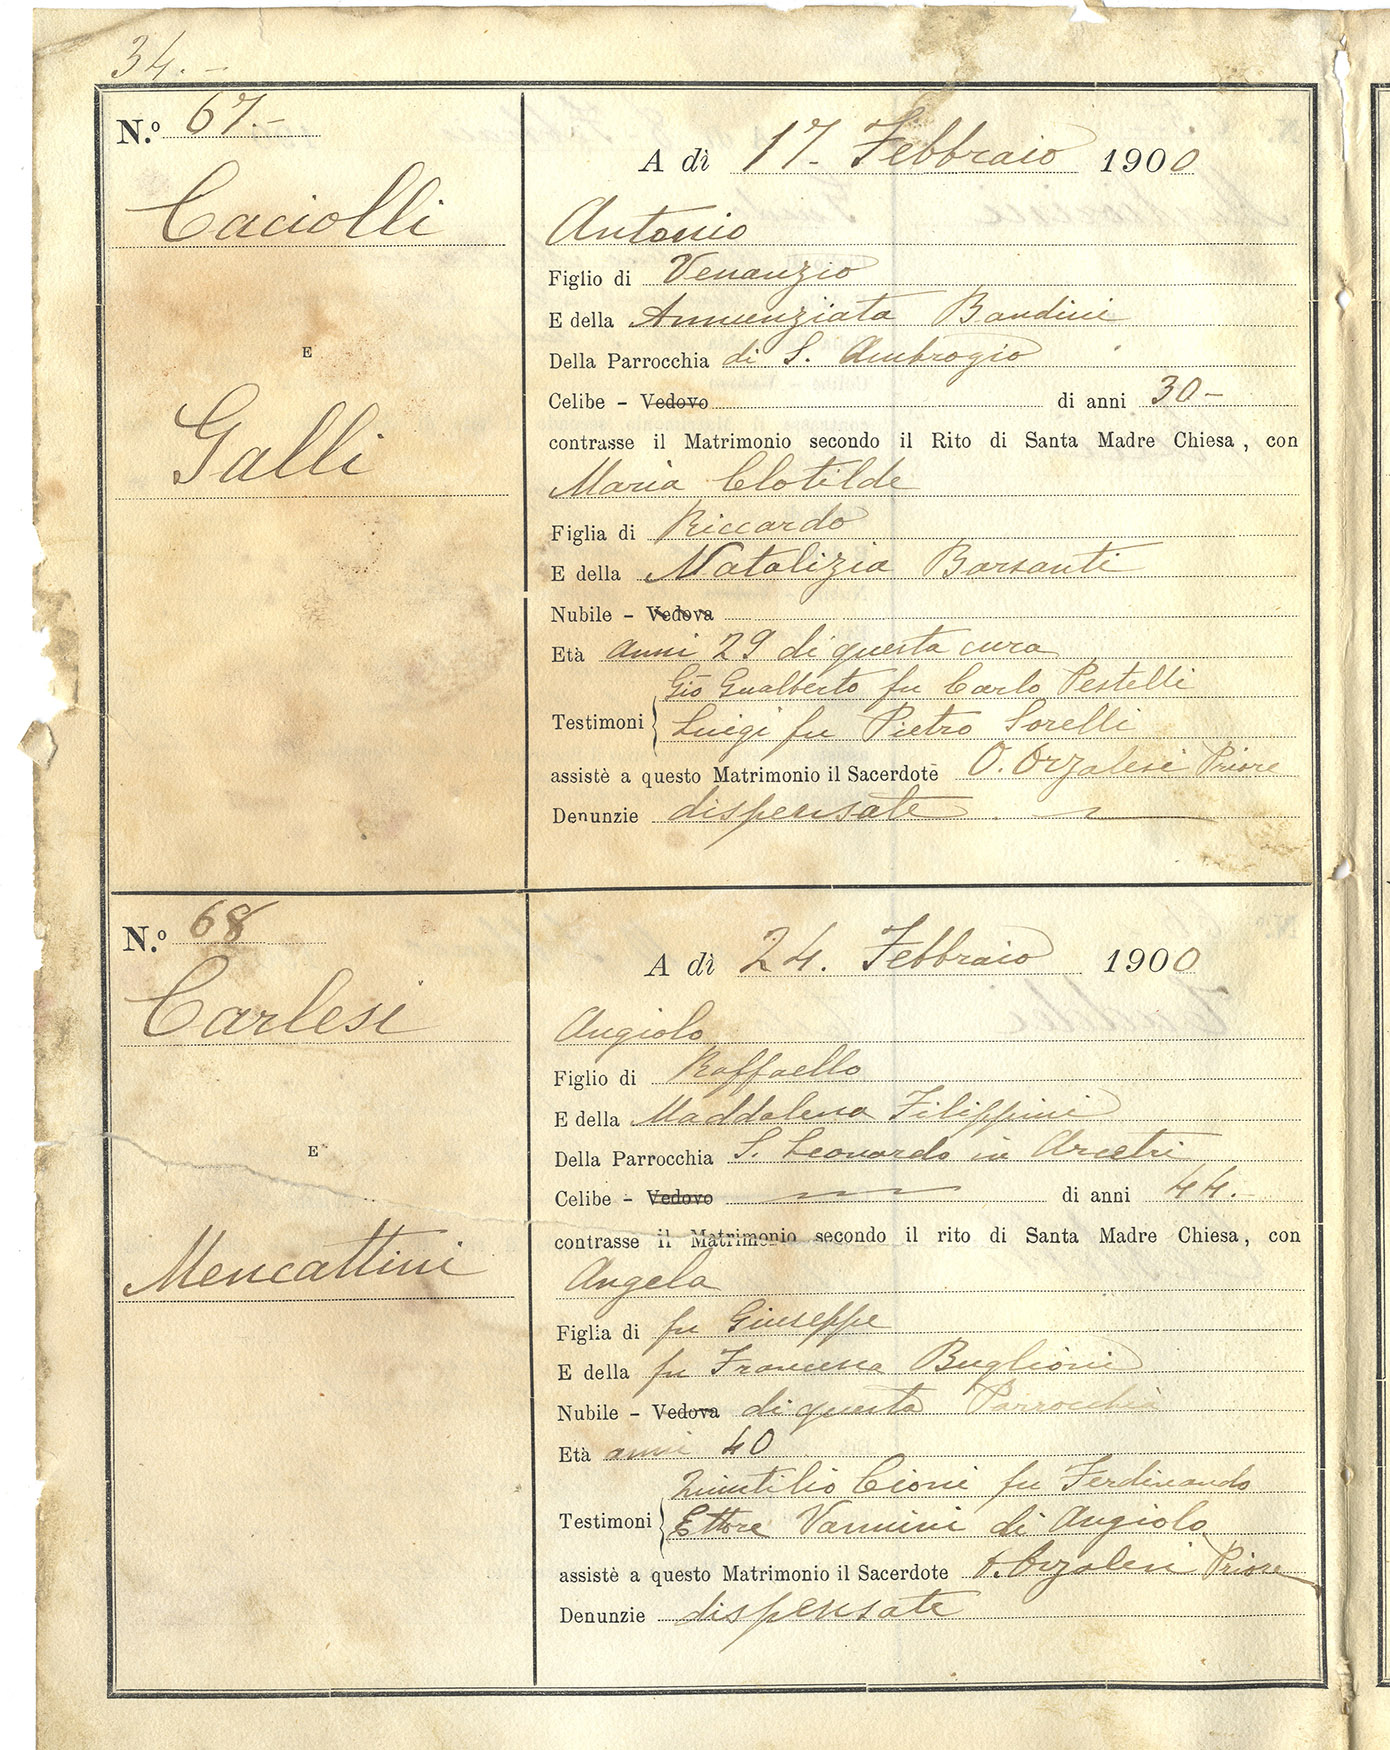 34.-
N.º 67.-
Caciolli
E
Galli
A dì 17. Febbraio 1900
Antonio
Figlio di Venanzio
E della Annunziata Bandini
Della Parrocchia di S. Ambrogio
Celibe - Vedovo di anni 30-
contrasse il Matrimonio secondo il Rito di Santa Madre Chiesa, con
Maria Clotilde
Figlia di Riccardo
E della Natalizia Barsanti
Nubile - Vedova
Età anni 29 di questa cura
Gio Gualberto fu Carlo Pestelli
Testimoni Luigi fu Pietro Sorelli
assistè a questo Matrimonio il Sacerdote O. Orzalesi Priore
Denunzie dispensate
N.º 68
Carlesi
E
Mencattini
A dì 24. Febbraio 1900
Angiolo
Figlio di Raffaello
E della Maddalena Filippini
Della Parrocchia S. Leonardo in Arcetri
Celibe - Vedovo di anni 44.
contrasse il Matrimonio secondo il rito di Santa Madre Chiesa, con
Angela
Figlia di fu Giuseppe
E della fu Francesca Buglioni
Nubile - Vedova di questa Parrocchia
Età anni 40
Quintilio Cioni fu Ferdinando
Testimoni Ettore Vannini di Angiolo
assistè a questo Matrimonio il Sacerdote O. Orzalesi Priore
Denunzie dispensate